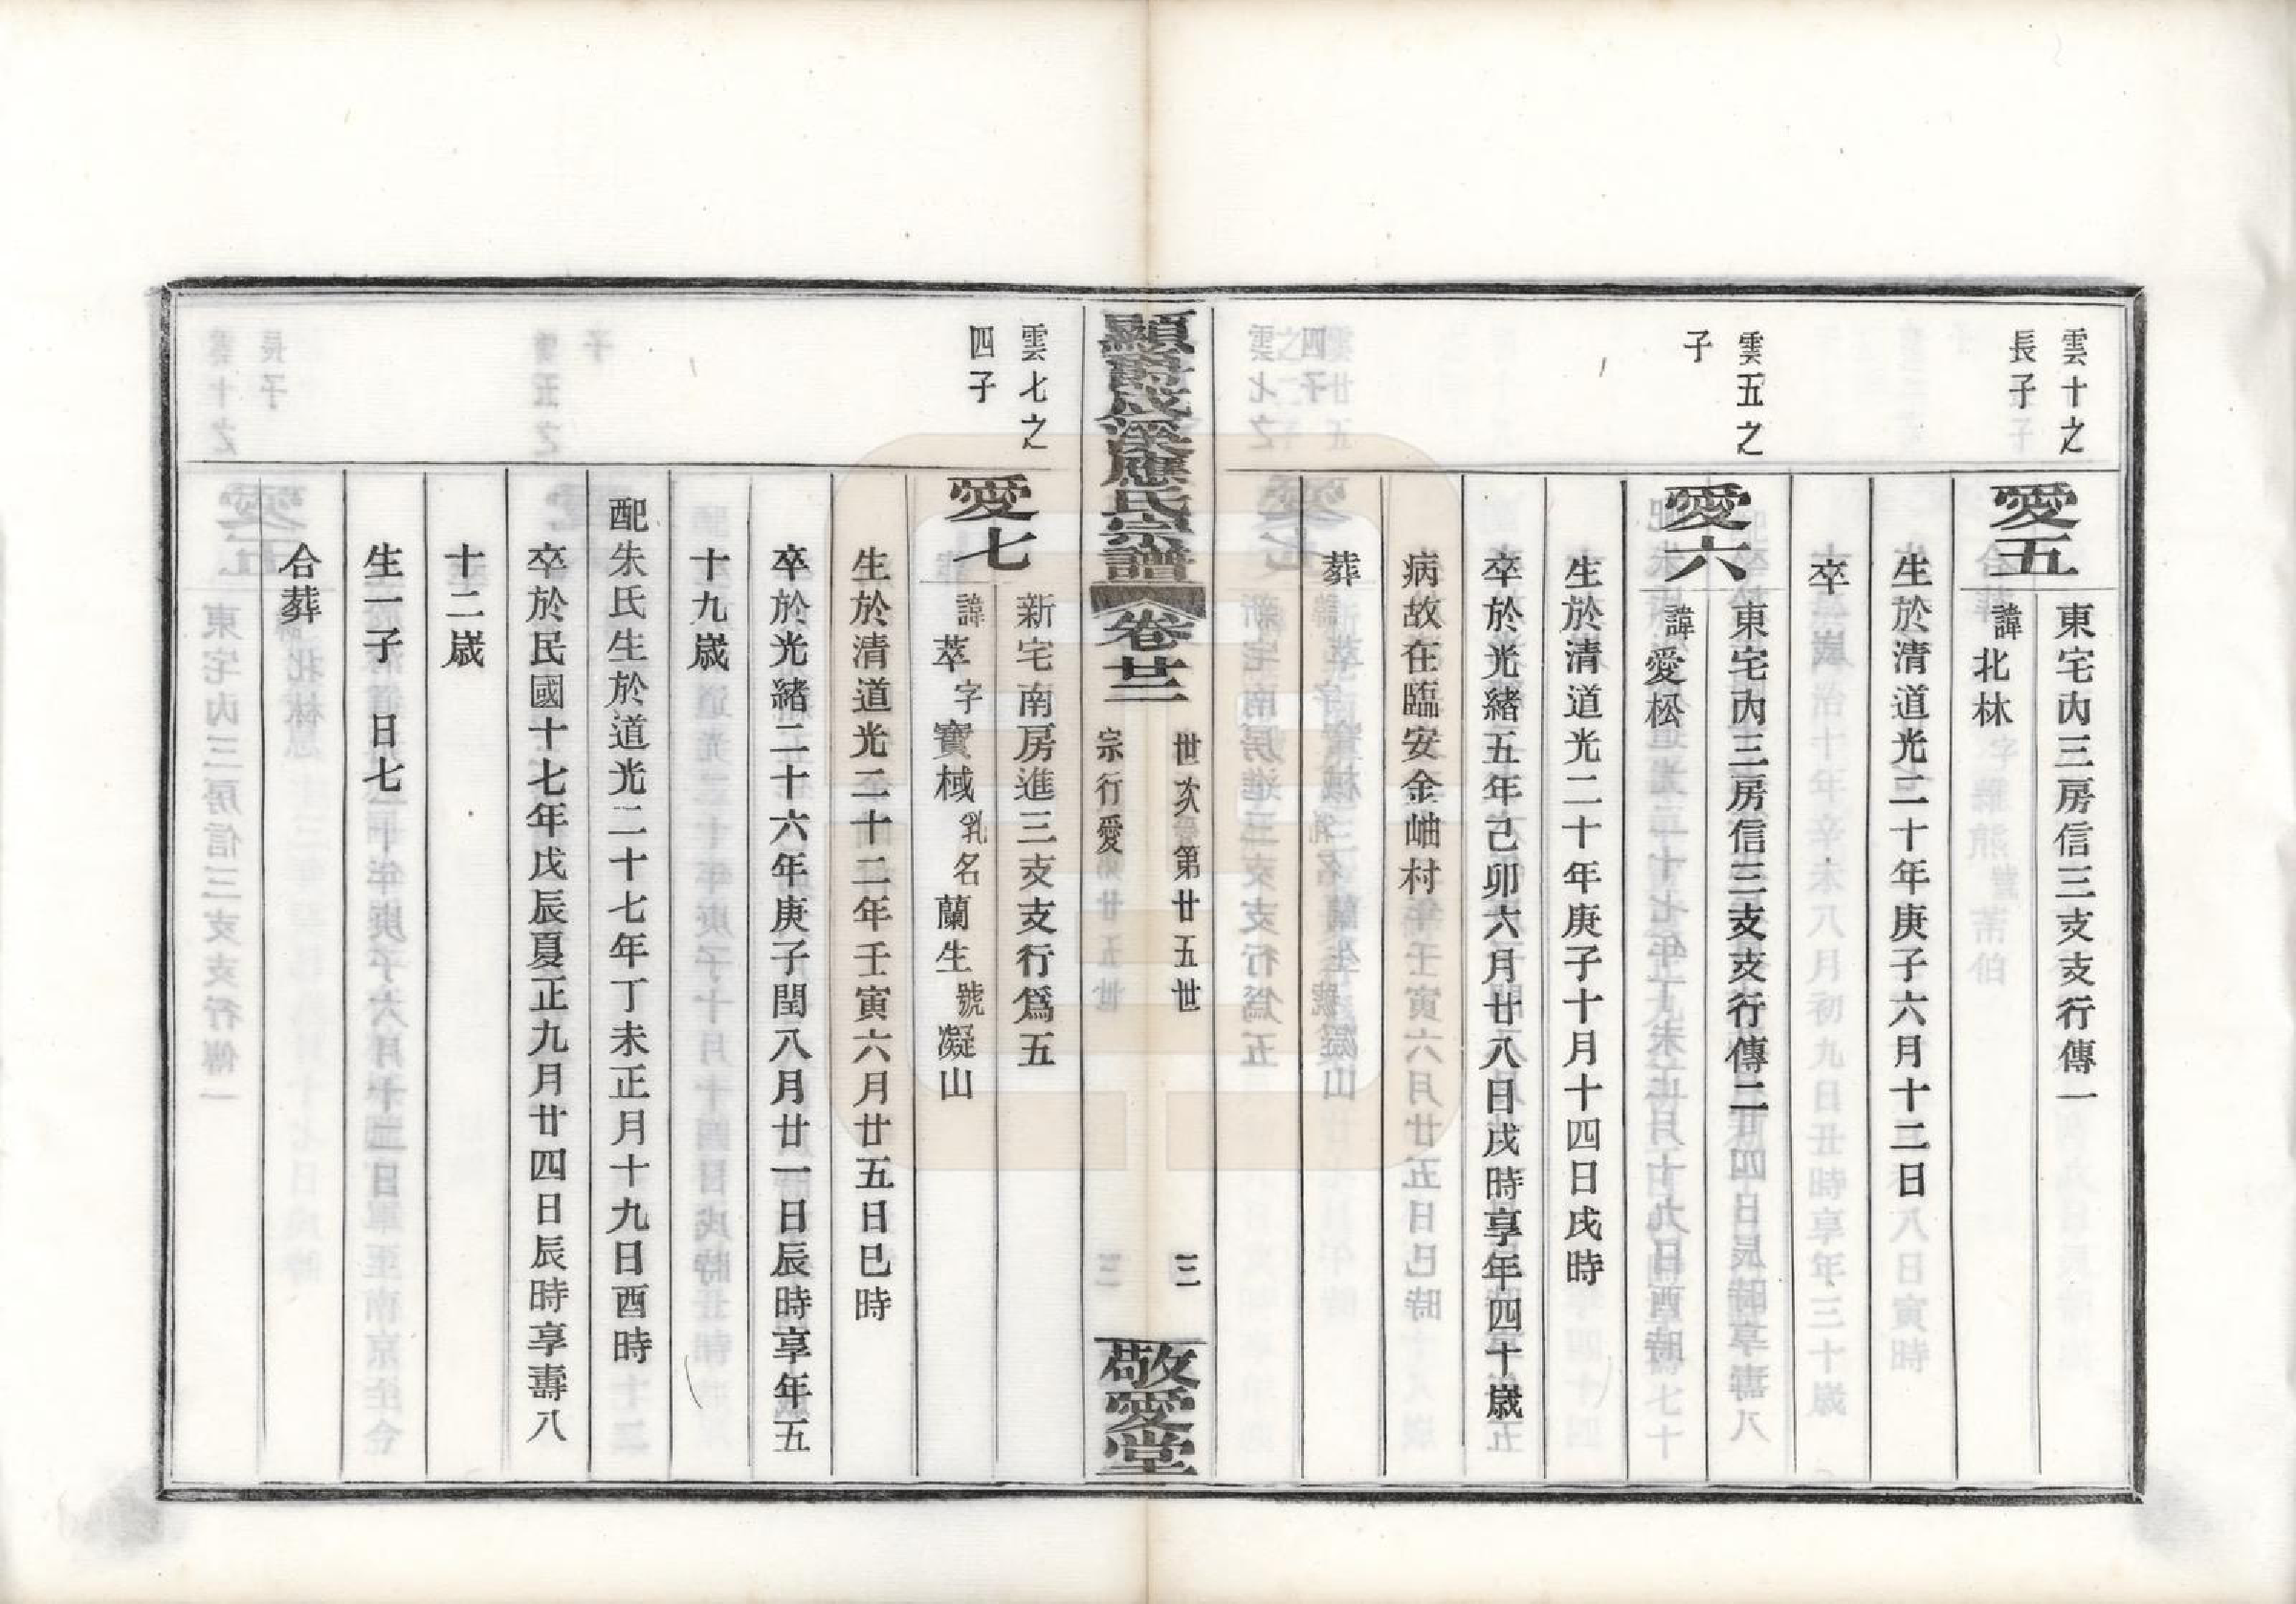 雲十之
長子
愛五
東宅內三房信三支支行傳一
諱北林
生於清道光二十年庚子六月十二日
卒
雲五之
子
愛六
東宅內三房信三支支行傳二
諱愛松
生於清道光二十年庚子十月十四日戌時
卒於光緒五年己卯六月廿八日戌時享年四十歲
病故在臨安金岫村
葬
應氏宗譜
卷廿三
世次第廿五世
宗行愛
三
敬愛堂
雲七之
四子
愛七
新宅南房進三支支行爲五
諱萃字寶棫乳名蘭生號凝山
生於清道光二十二年壬寅六月廿五日巳時
卒於光緒二十六年庚子閏八月廿一日辰時享年五
十九歲
配朱氏生於道光二十七年丁未正月十九日酉時
卒於民國十七年戊辰夏正九月廿四日辰時享壽八
十二歲
生一子 日七
合葬